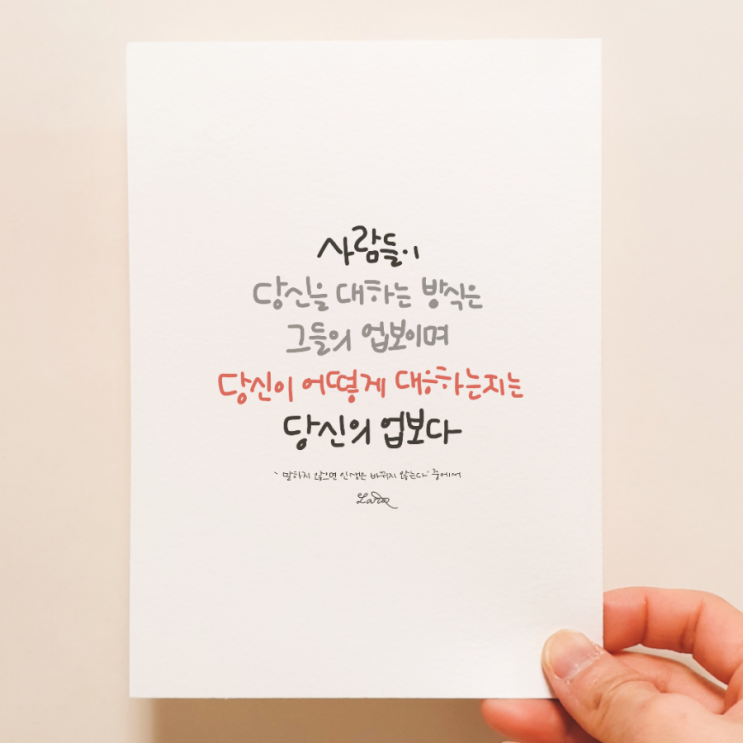 사람들이
당신을 대하는 방식은
그들의 업보이며
당신이 어떻게 대응하는지는
당신의 업보다
말하지 않으면 인생은 바뀌지 않는다" 중에서